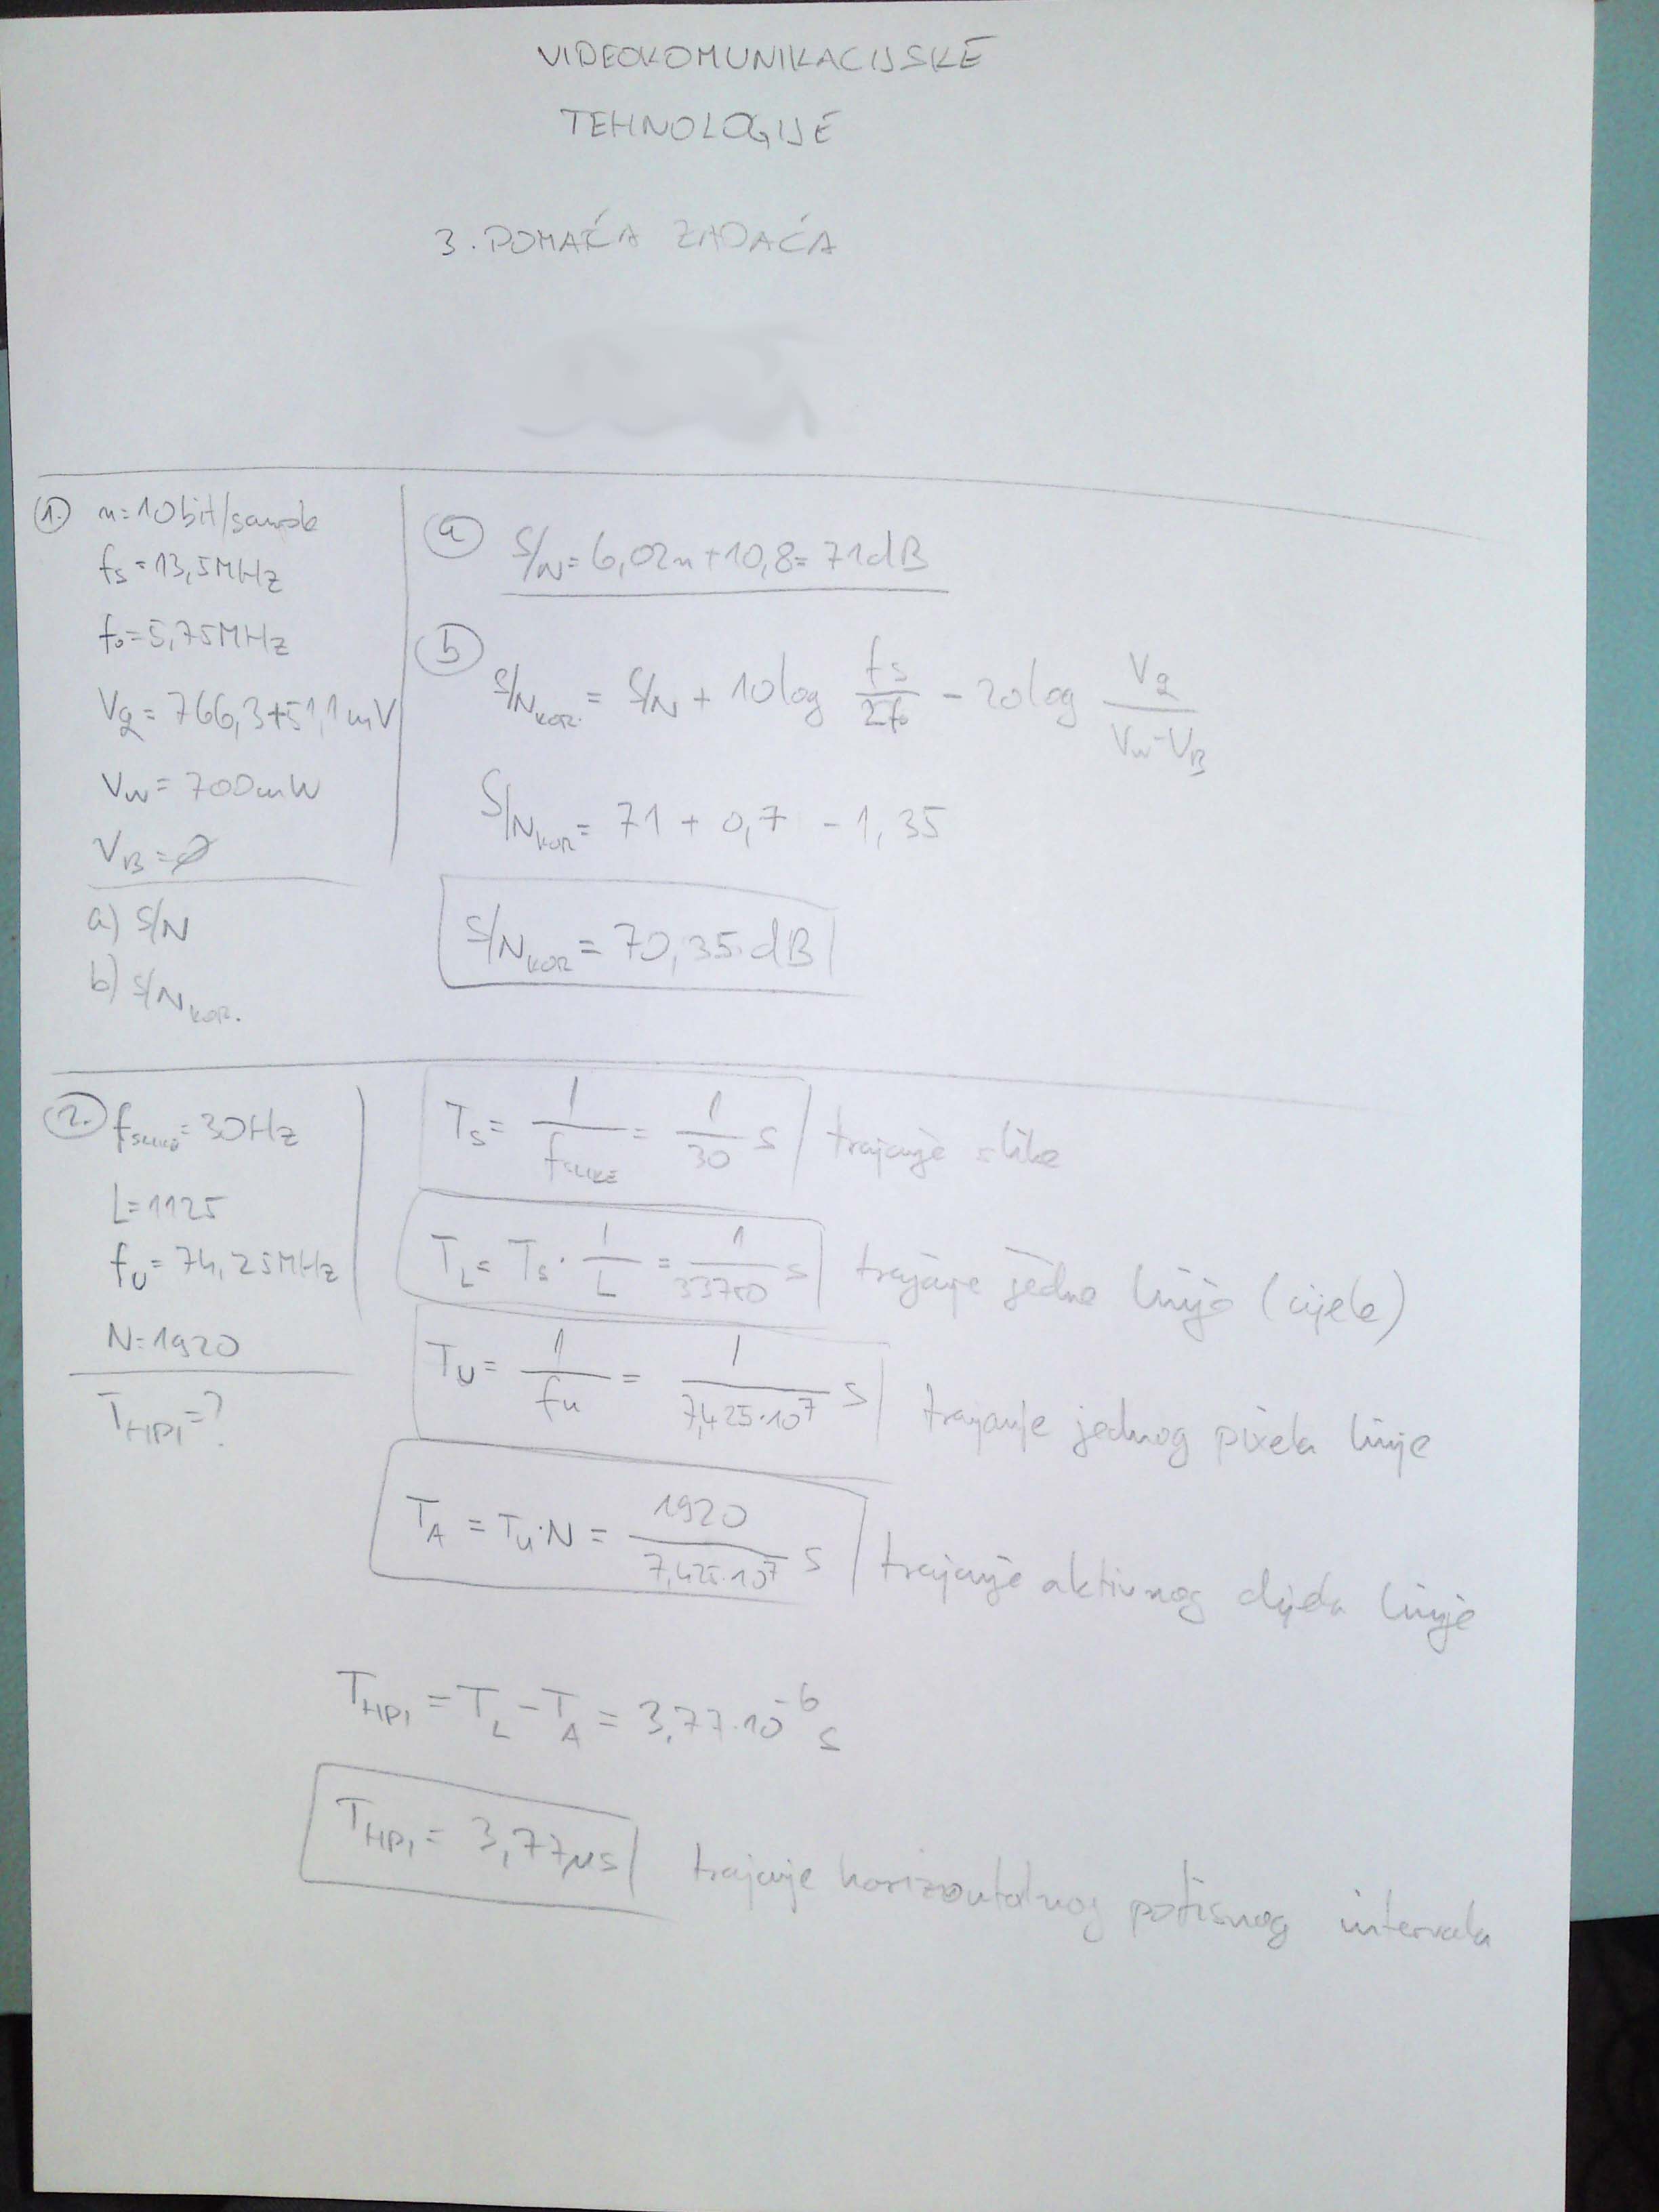 VIDEOKOMUNIKACIJSKE
TEHNOLOGIJE
3. DOMAĆA ZADAĆA
1. n=10bit/sample
fs=13,5MHz
fo=5,75MHz
Vq=766,3+51,1mV
Vw=700mW
VB=∅
a) S/N
b) S/N KOR.
a S/N=6,02n+10,8=71dB
b S/N KOR. = S/N + 10log fs/2fo - 20log Vq/Vw-VB
S/N KOR = 71 + 0,7 - 1,35
S/N KOR = 70,35 dB
2. fSLIKE=30Hz
L=1125
fU=74,25MHz
N=1920
THPI=?
Ts= 1/fSLIKE = 1/30 s trajanje slike
TL= Ts · 1/L = 1/33750 s trajanje jedne linije (cijele)
TU= 1/fu = 1/7,425·10⁷ s trajanje jednog pixela linije
TA = Tu·N = 1920/7,425·10⁷ s trajanje aktivnog dijela linije
THPI = TL - TA = 3,77·10⁻⁶ s
THPI = 3,77μs trajanje horizontalnog potisnog intervala